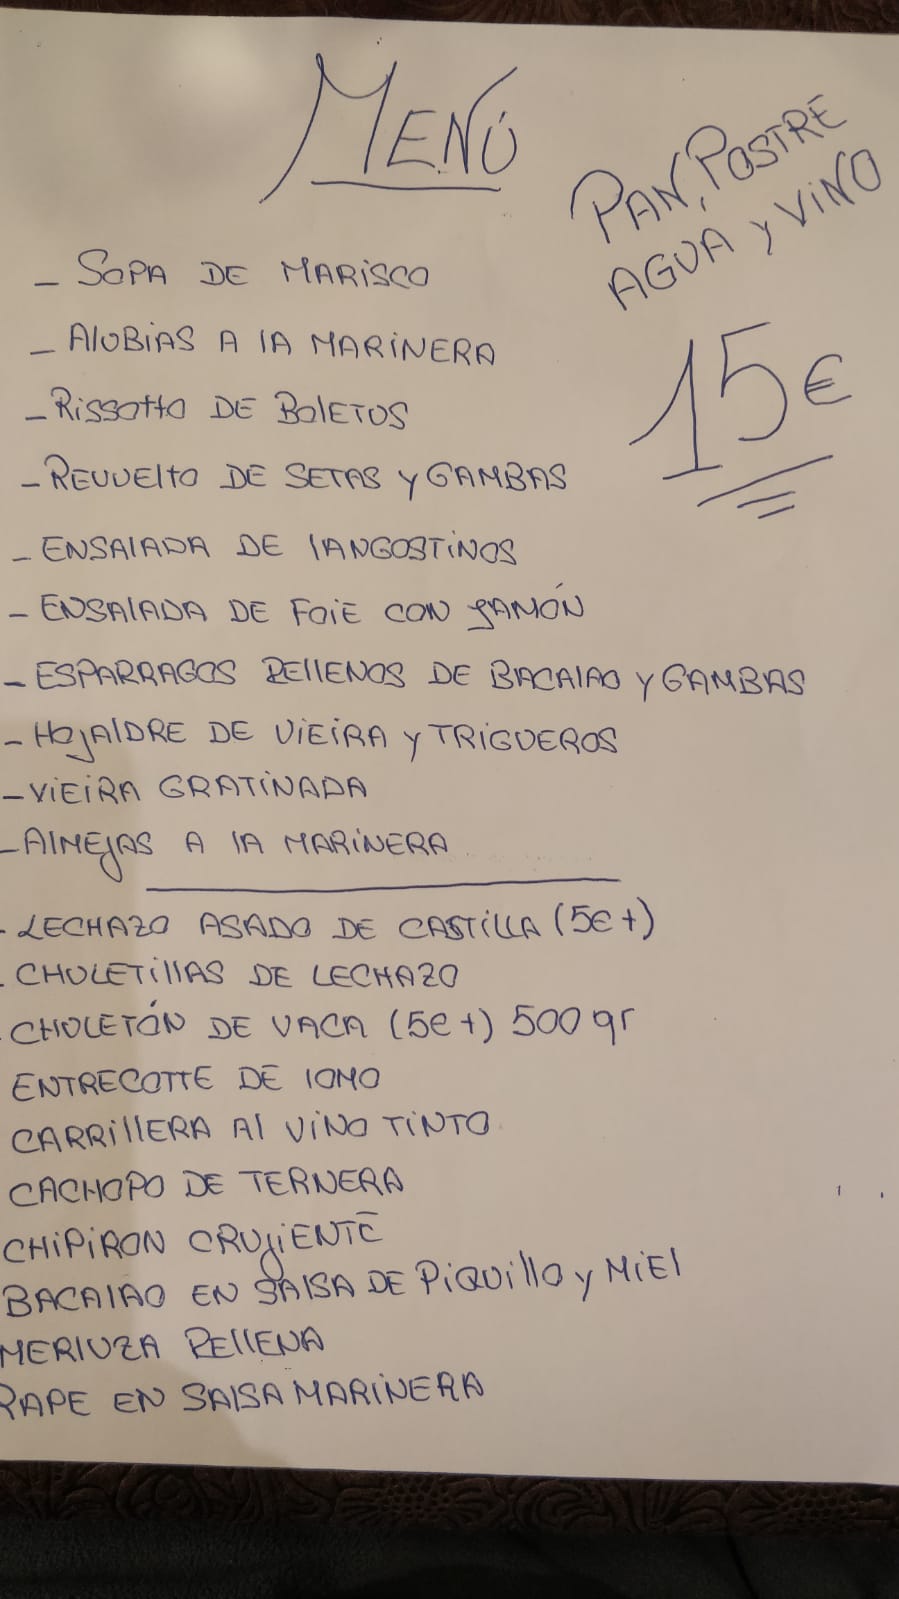 MENÚ
PAN, POSTRE
AGUA y VINO
15€
- SOPA DE MARISCO
- AlUBIAS A lA MARINERA
- RISSOTTO DE BOlETUS
- REVUElTO DE SETAS y GAMBAS
- ENSAlADA DE lANGOSTINOS
- ENSAlADA DE FOIE CON JAMÓN
- ESPARRAGOS REllENOS DE BACAlAO y GAMBAS
- HOJAlDRE DE VIEIRA y TRIGUEROS
- VIEIRA GRATINADA
- AlMEJAS A lA MARINERA
- LECHAZO ASADO DE CASTILLA (5€+)
- CHULETIllAS DE LECHAZO
- CHULETÓN DE VACA (5€+) 500 gr
ENTRECOTTE DE lOMO
CARRIllERA Al VINO TINTO
CACHOPO DE TERNERA
CHIPIRON CRUJIENTE
BACAlAO EN SAlSA DE PIQUIllO y MIEl
MERlUZA REllENA
RAPE EN SAlSA MARINERA